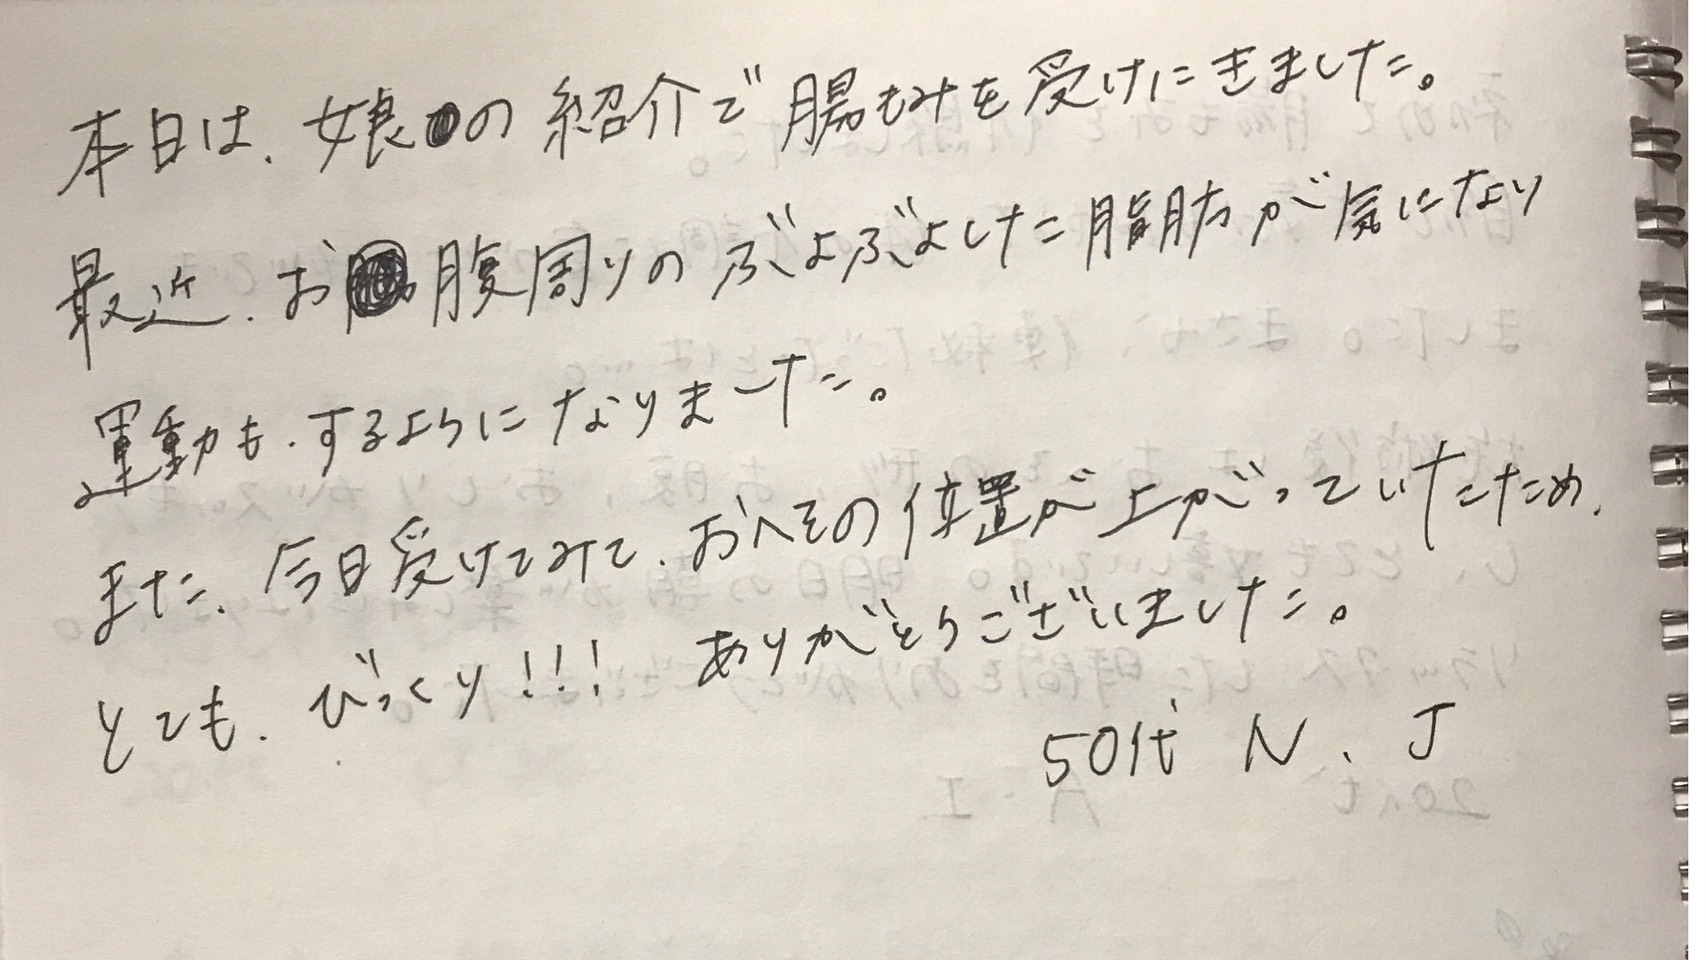 本日は、娘の紹介で腸もみを受けにきました。
最近、お腹周りのぶよぶよした脂肪が気になり
運動も、するようになりました。
また、今日受けてみて、おへその位置が上がっていたため、
とても、びっくり!!! ありがとうございました。
50代 N、J